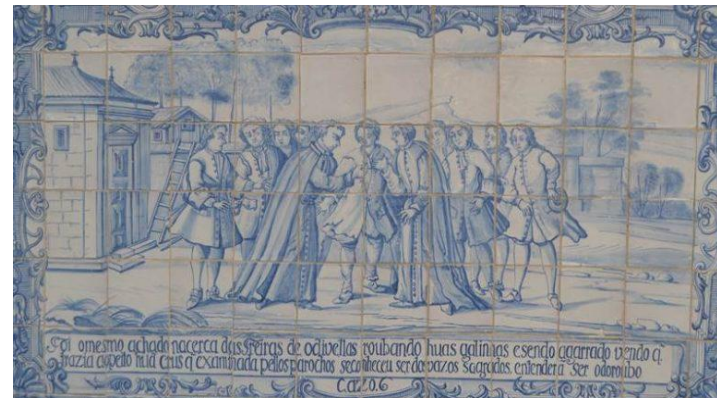 Foi omesmo achado nacerca dasfreiras de odivellas roubando huas galinhas esendo agarrado vendo q̃
trazia aopeito hũa crus q̃ examinada pellos parochos seconheceu serdos vazos sagrados. entenderã ser odoroubo